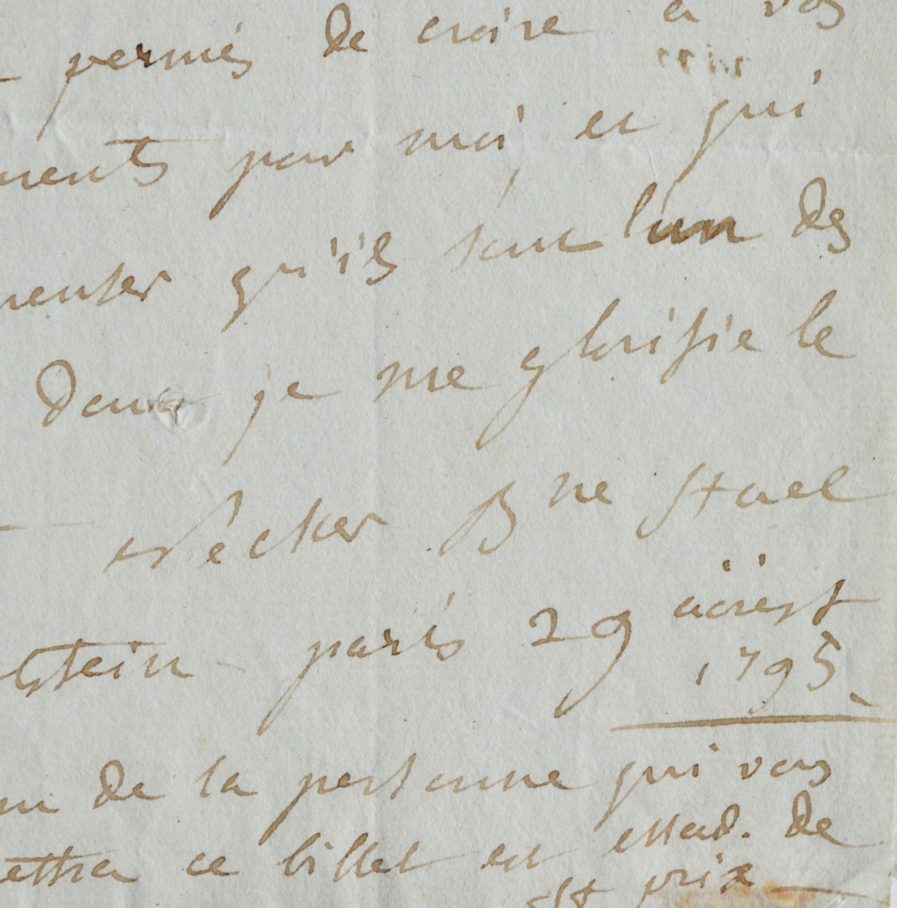 permis de croire a vos
ments pour moi, et qui
menter qu'ils sont l'un des
dont je me glorifie le
Necker Bne Stael
olstein paris 29 aoust
1795.
de la personne qui vous
ettra ce billet est de
prix